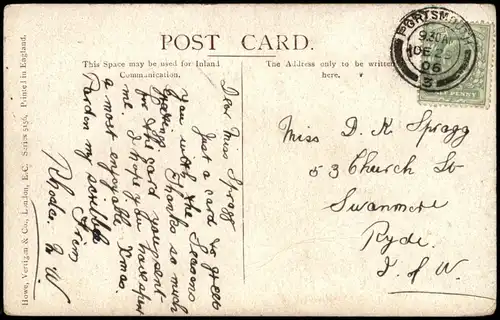 POST CARD.
This Space may be used for Inland
Communication.
The Address only to be written
here.
PORTSMOUTH
9.30AM
DE
06
3
PENNY
Dear Miss Spragg
Just a card to greet
you with the Seasons
Thanks so much
for the card you sent
me. I hope you have spent
a most enjoyable Xmas.
Pardon my scribble
From
Rhoda. N W.
Miss D. K. Spragg
53 Church St
Swanmore
Ryde.
I of W.
Howe, Vertigan & Co., London, E.C. Series 5156. Printed in England.